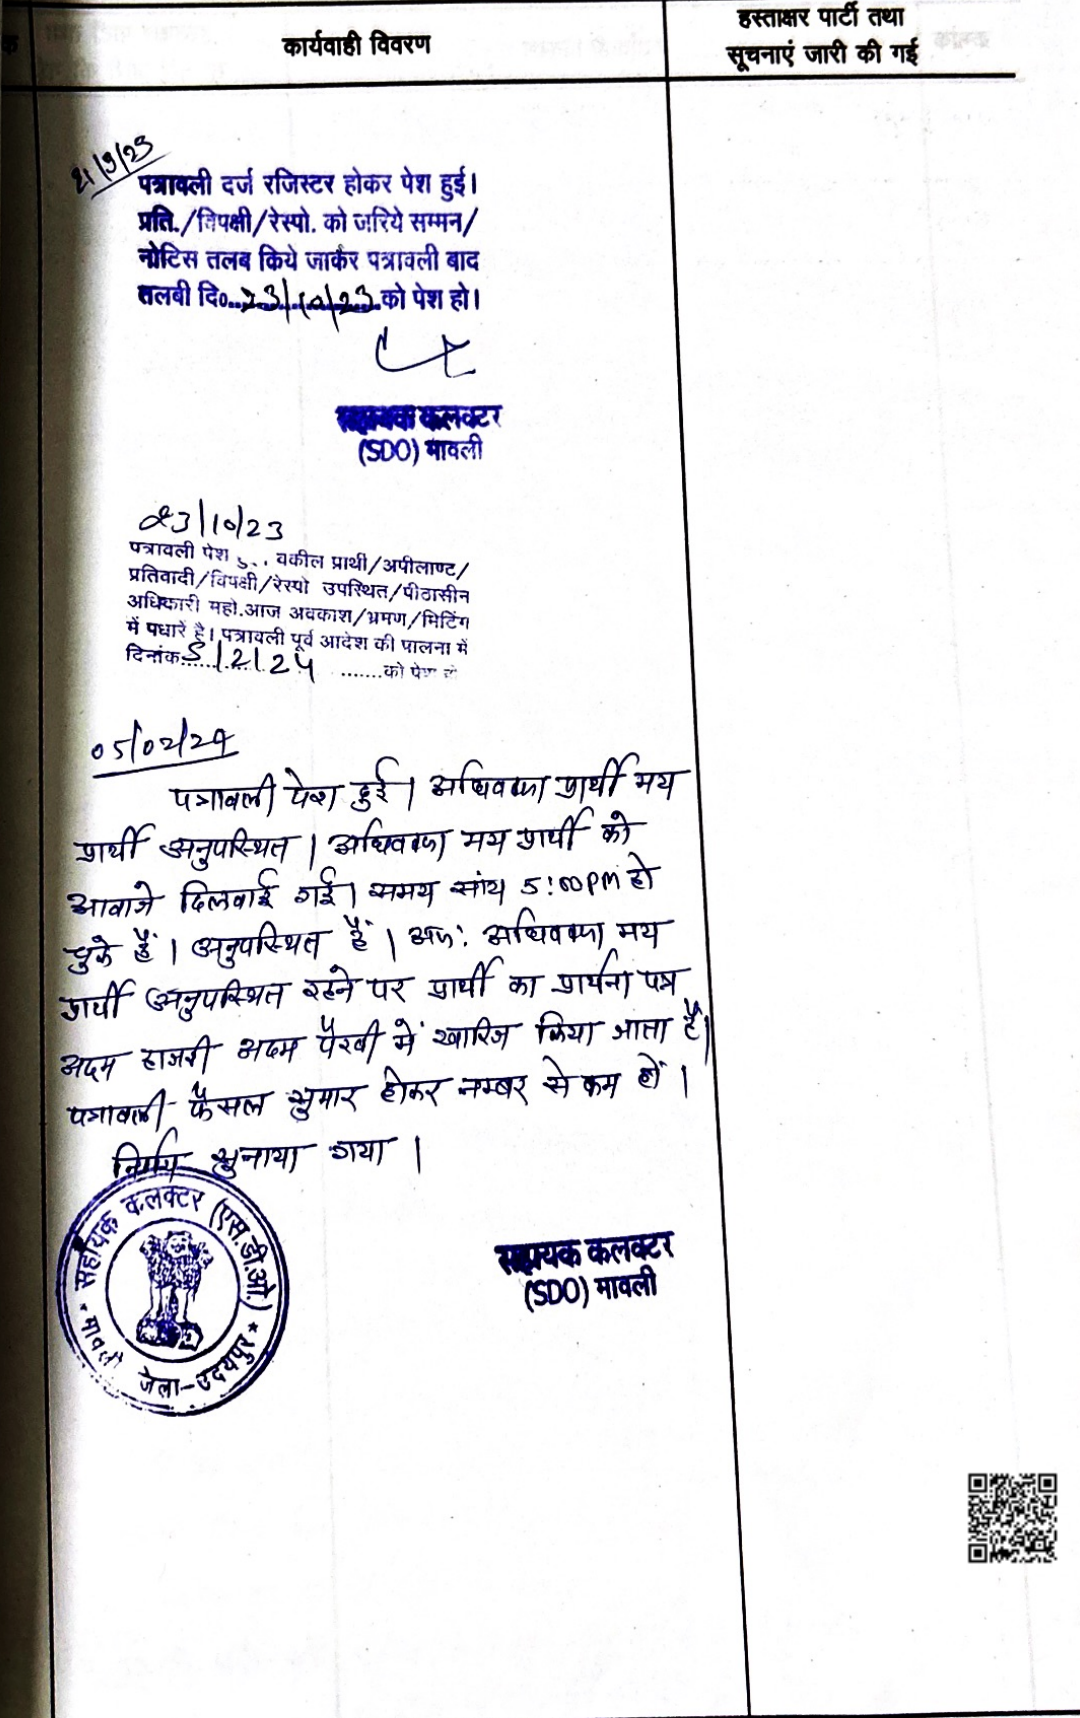 कार्यवाही विवरण
हस्ताक्षर पार्टी तथा
सूचनाएं जारी की गई
21/9/23
पत्रावली दर्ज रजिस्टर होकर पेश हुई।
प्रति./विपक्षी/रेस्पो. को जरिये सम्मन/
नोटिस तलब किये जाकर पत्रावली बाद
तलबी दि०..23/10/23.को पेश हो।
सहायक कलक्टर
(SDO) मावली
23/10/23
पत्रावली पेश वकील प्रार्थी/अपीलाण्ट/
प्रतिवादी/विपक्षी/रेस्पो उपस्थित/पीठासीन
अधिकारी महो.आज अवकाश/भ्रमण/मिटिंग
में पधारें है। पत्रावली पूर्व आदेश की पालना में
दिनांक..5/2/24.......को पेश हो
05/02/24
पत्रावली पेश हुई। अधिवक्ता प्रार्थी मय
प्रार्थी अनुपस्थित। अधिवक्ता मय प्रार्थी को
आवाजे दिलवाई गई। समय सांय 5:00PM हो
चुके हैं। अनुपस्थित हैं। अतः अधिवक्ता मय
प्रार्थी अनुपस्थित रहने पर प्रार्थी का प्रार्थना पत्र
अदम हाजरी अदम पैरवी में खारिज किया जाता है।
पत्रावली फैसल शुमार होकर नम्बर से कम हो।
निर्णय सुनाया गया।
सहायक कलक्टर
(SDO) मावली
सहायक कलक्टर (एस.डी.ओ.)
मावली जिला-उदयपुर